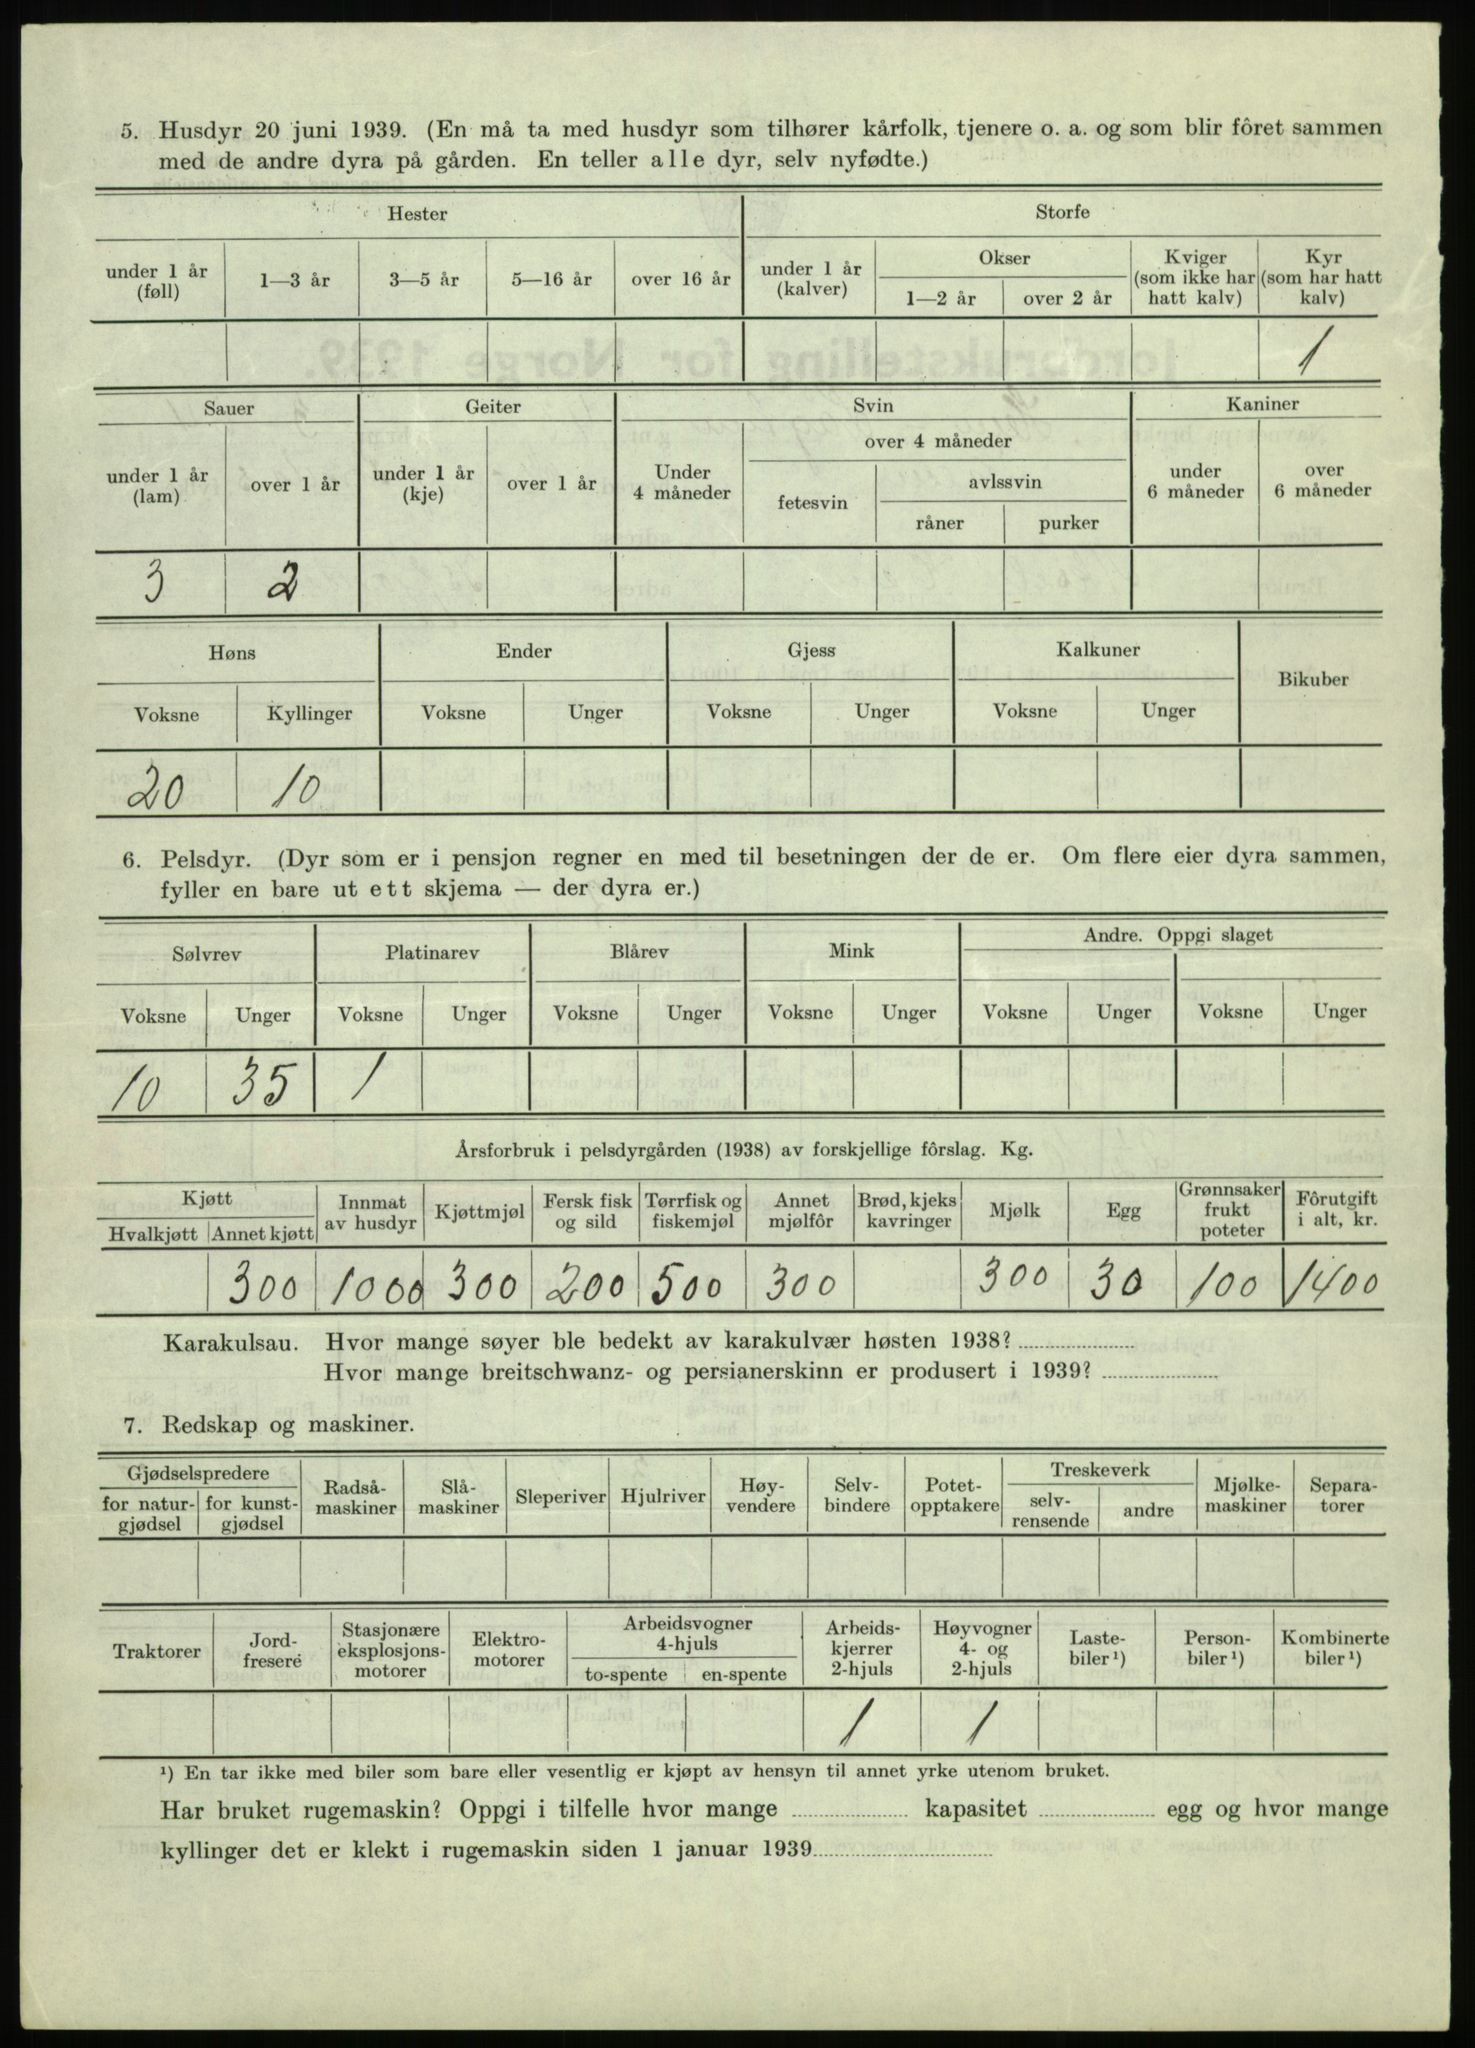 5. Husdyr 20 juni 1939. (En må ta med husdyr som tilhører kårfolk, tjenere o. a. og som blir fôret sammen
med de andre dyra på gården. En teller alle dyr, selv nyfødte.)
Hester Storfe
under 1 år (føll) 1—3 år 3—5 år 5—16 år over 16 år under 1 år (kalver) Okser 1—2 år over 2 år Kviger (som ikke har hatt kalv) Kyr (som har hatt kalv)
1
Sauer Geiter Svin Kaniner
under 1 år (lam) over 1 år under 1 år (kje) over 1 år Under 4 måneder over 4 måneder fetesvin avlssvin råner purker under 6 måneder over 6 måneder
3 2
Høns Ender Gjess Kalkuner Bikuber
Voksne Kyllinger Voksne Unger Voksne Unger Voksne Unger
20 10
6. Pelsdyr. (Dyr som er i pensjon regner en med til besetningen der de er. Om flere eier dyra sammen,
fyller en bare ut ett skjema — der dyra er.)
Sølvrev Platinarev Blårev Mink Andre. Oppgi slaget
Voksne Unger Voksne Unger Voksne Unger Voksne Unger Voksne Unger Voksne Unger
10 35 1
Årsforbruk i pelsdyrgården (1938) av forskjellige fôrslag. Kg.
Kjøtt Hvalkjøtt Annet kjøtt Innmat av husdyr Kjøttmjøl Fersk fisk og sild Tørrfisk og fiskemjøl Annet mjølfôr Brød, kjeks kavringer Mjølk Egg Grønnsaker frukt poteter Fôrutgift i alt, kr.
300 1000 300 200 500 300 300 30 100 1400
Karakulsau. Hvor mange søyer ble bedekt av karakulvær høsten 1938?
Hvor mange breitschwanz- og persianerskinn er produsert i 1939?
7. Redskap og maskiner.
Gjødselspredere for natur-gjødsel for kunst-gjødsel Radså-maskiner Slå-maskiner Sleperiver Hjulriver Høy-vendere Selv-bindere Potet-opptakere Treskeverk selv-rensende andre Mjølke-maskiner Separa-torer
Traktorer Jord-fresere Stasjonære eksplosjons-motorer Elektro-motorer Arbeidsvogner 4-hjuls to-spente en-spente Arbeids-kjerrer 2-hjuls Høyvogner 4- og 2-hjuls Laste-biler¹) Person-biler¹) Kombinerte biler¹)
1 1
¹) En tar ikke med biler som bare eller vesentlig er kjøpt av hensyn til annet yrke utenom bruket.
Har bruket rugemaskin? Oppgi i tilfelle hvor mange kapasitet egg og hvor mange
kyllinger det er klekt i rugemaskin siden 1 januar 1939